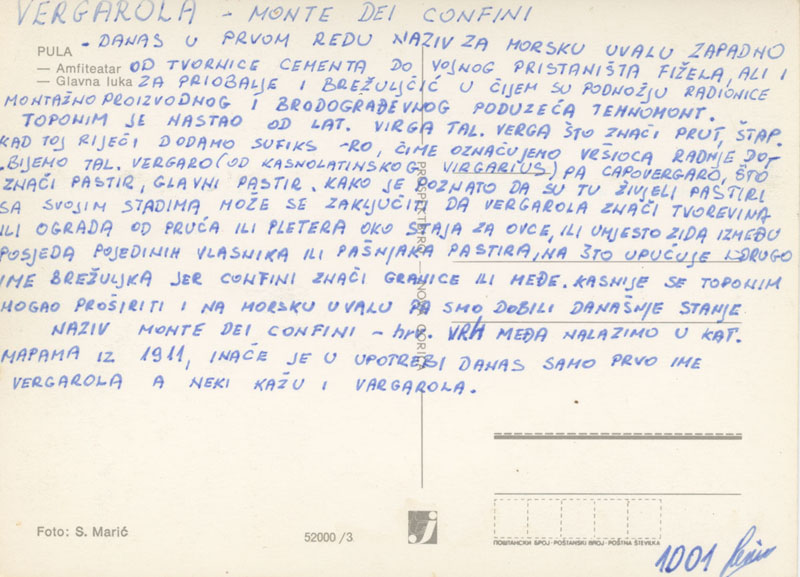 VERGAROLA - MONTE DEI CONFINI
- DANAS U PRVOM REDU NAZIV ZA MORSKU UVALU ZAPADNO
PULA
— Amfiteatar
— Glavna luka
OD TVORNICE CEMENTA DO VOJNOG PRISTANIŠTA FIŽELA, ALI I
ZA PRIOBALJE I BREŽULJČIĆ U ČIJEM SU PODNOŽJU RADIONICE
MONTAŽNO PROIZVODNOG I BRODOGRAĐEVNOG PODUZEĆA TEHNOMONT.
TOPONIM JE NASTAO OD LAT. VIRGA TAL. VERGA ŠTO ZNAČI PRUT, ŠTAP.
KAD TOJ RIJEČI DODAMO SUFIKS -RO, ČIME OZNAČUJEMO VRŠIOCA RADNJE DO-
BIJEMO TAL. VERGARO (OD KASNOLATINSKOG VIRGARIUS) PA CAPOVERGARO, ŠTO
ZNAČI PASTIR, GLAVNI PASTIR. KAKO JE POZNATO DA SU TU ŽIVJELI PASTIRI
SA SVOJIM STADIMA MOŽE SE ZAKLJUČITI DA VERGAROLA ZNAČI TVOREVINA
ILI OGRADA OD PRUĆA ILI PLETERA OKO STAJA ZA OVCE, ILI UMJESTO ZIDA IZMEĐU
POSJEDA POJEDINIH VLASNIKA ILI PAŠNJAKA PASTIRA, NA ŠTO UPUĆUJE I DRUGO
IME BREŽULJKA JER CONFINI ZNAČI GRANICE ILI MEĐE. KASNIJE SE TOPONIM
MOGAO PROŠIRITI I NA MORSKU UVALU PA SMO DOBILI DANAŠNJE STANJE
NAZIV MONTE DEI CONFINI - hrv. VRH MEĐA NALAZIMO U KAT.
MAPAMA IZ 1911, INAČE JE U UPOTREBI DANAS SAMO PRVO IME
VERGAROLA A NEKI KAŽU I VARGAROLA.
Foto: S. Marić
52000 /3
j
ПОШТАНСКИ БРОЈ - POŠTANSKI BROJ - POŠTNA ŠTEVILKA
1001